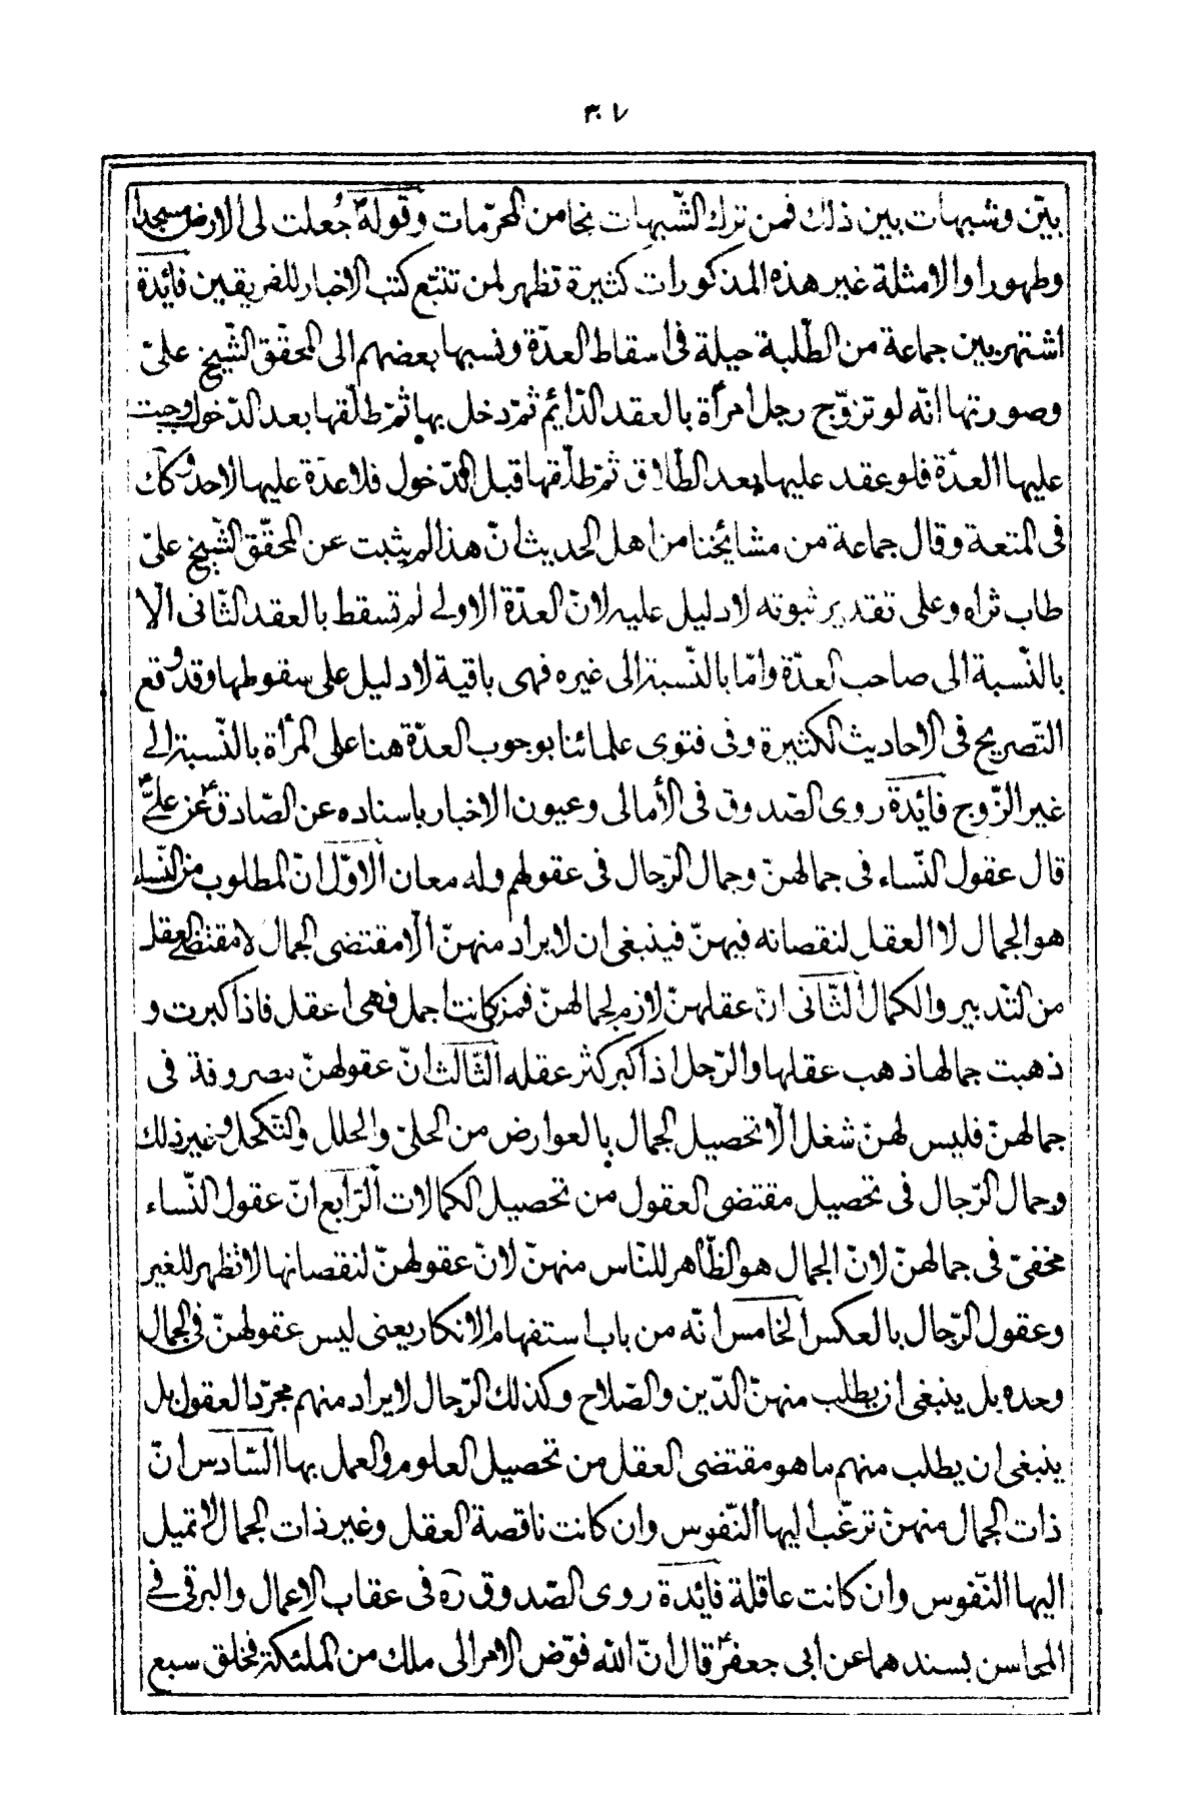 ٣٠٧
بيّن وشبهات بين ذلك فمن ترك الشّبهات نجا من المحرّمات وقوله ص جُعلت لى الارض مسجدا
وطهورا والامثلة غير هذه المذكورات كثيرة تظهر لمن تتبّع كتب الاخبار للفريقين فائدة
اشتهر بين جماعة من الطّلبة حيلة فى اسقاط العدّة ونسبها بعضهم الى المحقّق الشّيخ علىّ
وصورتها انّه لو تزوّج رجل امرأة بالعقد الدّائم ثمّ دخل بها ثمّ طلّقها بعد الدّخول وجبت
عليها العدّة فلو عقد عليها بعد الطّلاق ثمّ طلّقها قبل الدّخول فلا عدّة عليها لاحد وكك
فى المتعة وقال جماعة من مشائخنا من اهل الحديث انّ هذا لم يثبت عن المحقّق الشّيخ علىّ
طاب ثراه وعلى تقدير ثبوته لا دليل عليه لانّ العدّة الاولى لم تسقط بالعقد الثّانى الّا
بالنّسبة الى صاحب العدّة وامّا بالنّسبة الى غيره فهى باقية لا دليل على سقوطها وقد وقع
التّصريح فى الاحاديث الكثيرة وفى فتوى علمائنا بوجوب العدّة هنا على المرأة بالنّسبة الى
غير الزّوج فائدة روى الصّدوق فى الأمالى وعيون الاخبار باسناده عن الصّادق ع عن علىّ ع
قال عقول النّساء فى جمالهنّ وجمال الرّجال فى عقولهم وله معان الاوّل انّ المطلوب من النّساء
هو الجمال لا العقل لنقصانه فيهنّ فينبغى ان لا يراد منهنّ الّا مقتضى الجمال لا مقتضى العقل
من التّدبير والكمال الثّانى انّ عقلهنّ لازم لجمالهنّ فمن كانت اجمل فهى اعقل فاذا كبرت و
ذهبت جمالها ذهب عقلها والرّجل اذا كبر كثر عقله الثّالث انّ عقولهنّ مصروفة فى
جمالهنّ فليس لهنّ شغل الّا تحصيل الجمال بالعوارض من الحلىّ والحلل والتّكحل وغير ذلك
وجمال الرّجال فى تحصيل مقتضى العقول من تحصيل الكمالات الرّابع انّ عقول النّساء
مخفىّ فى جمالهنّ لانّ الجمال هو الظّاهر للنّاس منهنّ لانّ عقولهنّ لنقصانها لا تظهر للغير
وعقول الرّجال بالعكس الخامس انّه من باب استفهام الانكار يعنى ليس عقولهنّ فى الجمال
وحده بل ينبغى ان يطلب منهنّ الدّين والصّلاح وكذلك الرّجال لا يراد منهم مجرّد العقول بل
ينبغى ان يطلب منهم ما هو مقتضى العقل من تحصيل العلوم والعمل بها السّادس انّ
ذات الجمال منهنّ ترغّب اليها النّفوس وان كانت ناقصة العقل وغير ذات الجمال لا تميل
اليها النّفوس وان كانت عاقلة فائدة روى الصّدوق ره فى عقاب الاعمال والبرقى فى
المحاسن بسندهما عن ابى جعفر ع قال انّ اللّه فوّض الامر الى ملك من الملئكة فخلق سبع